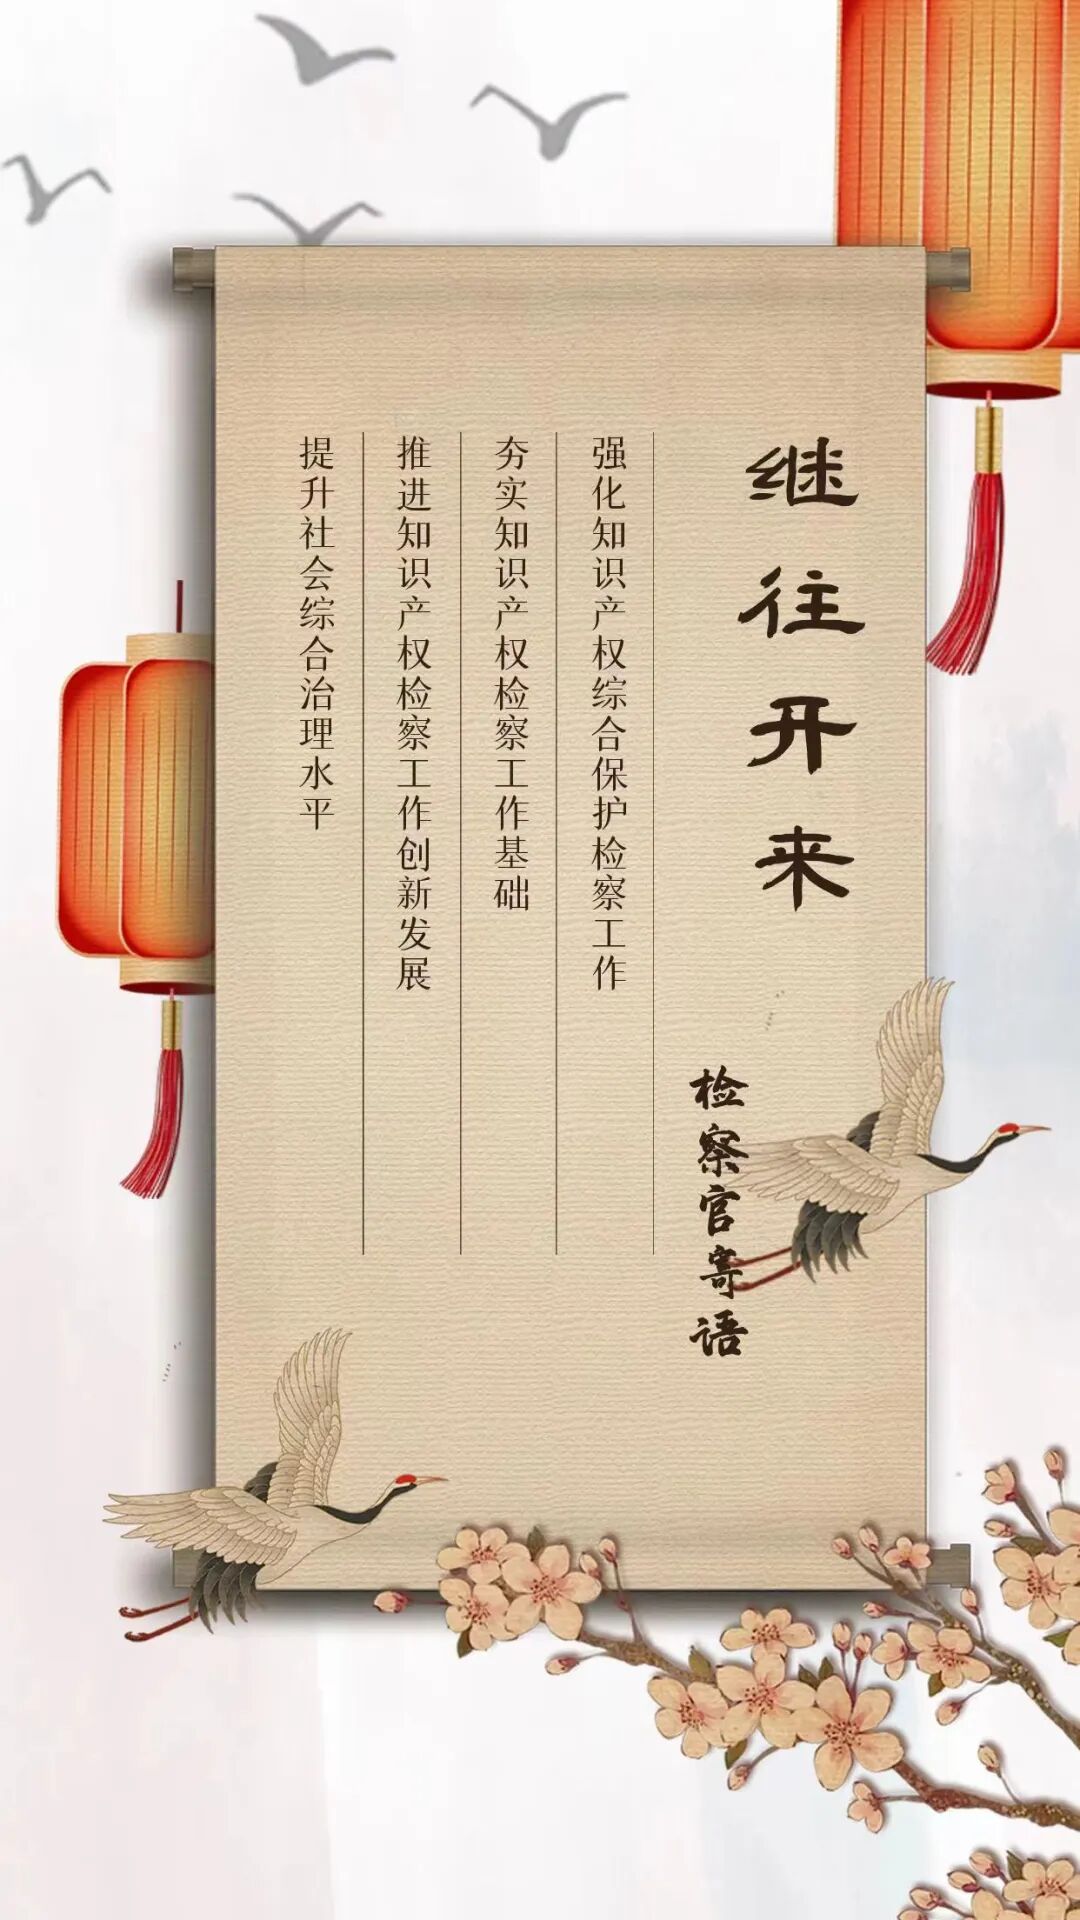 继往开来
检察官寄语
强化知识产权综合保护检察工作
夯实知识产权检察工作基础
推进知识产权检察工作创新发展
提升社会综合治理水平